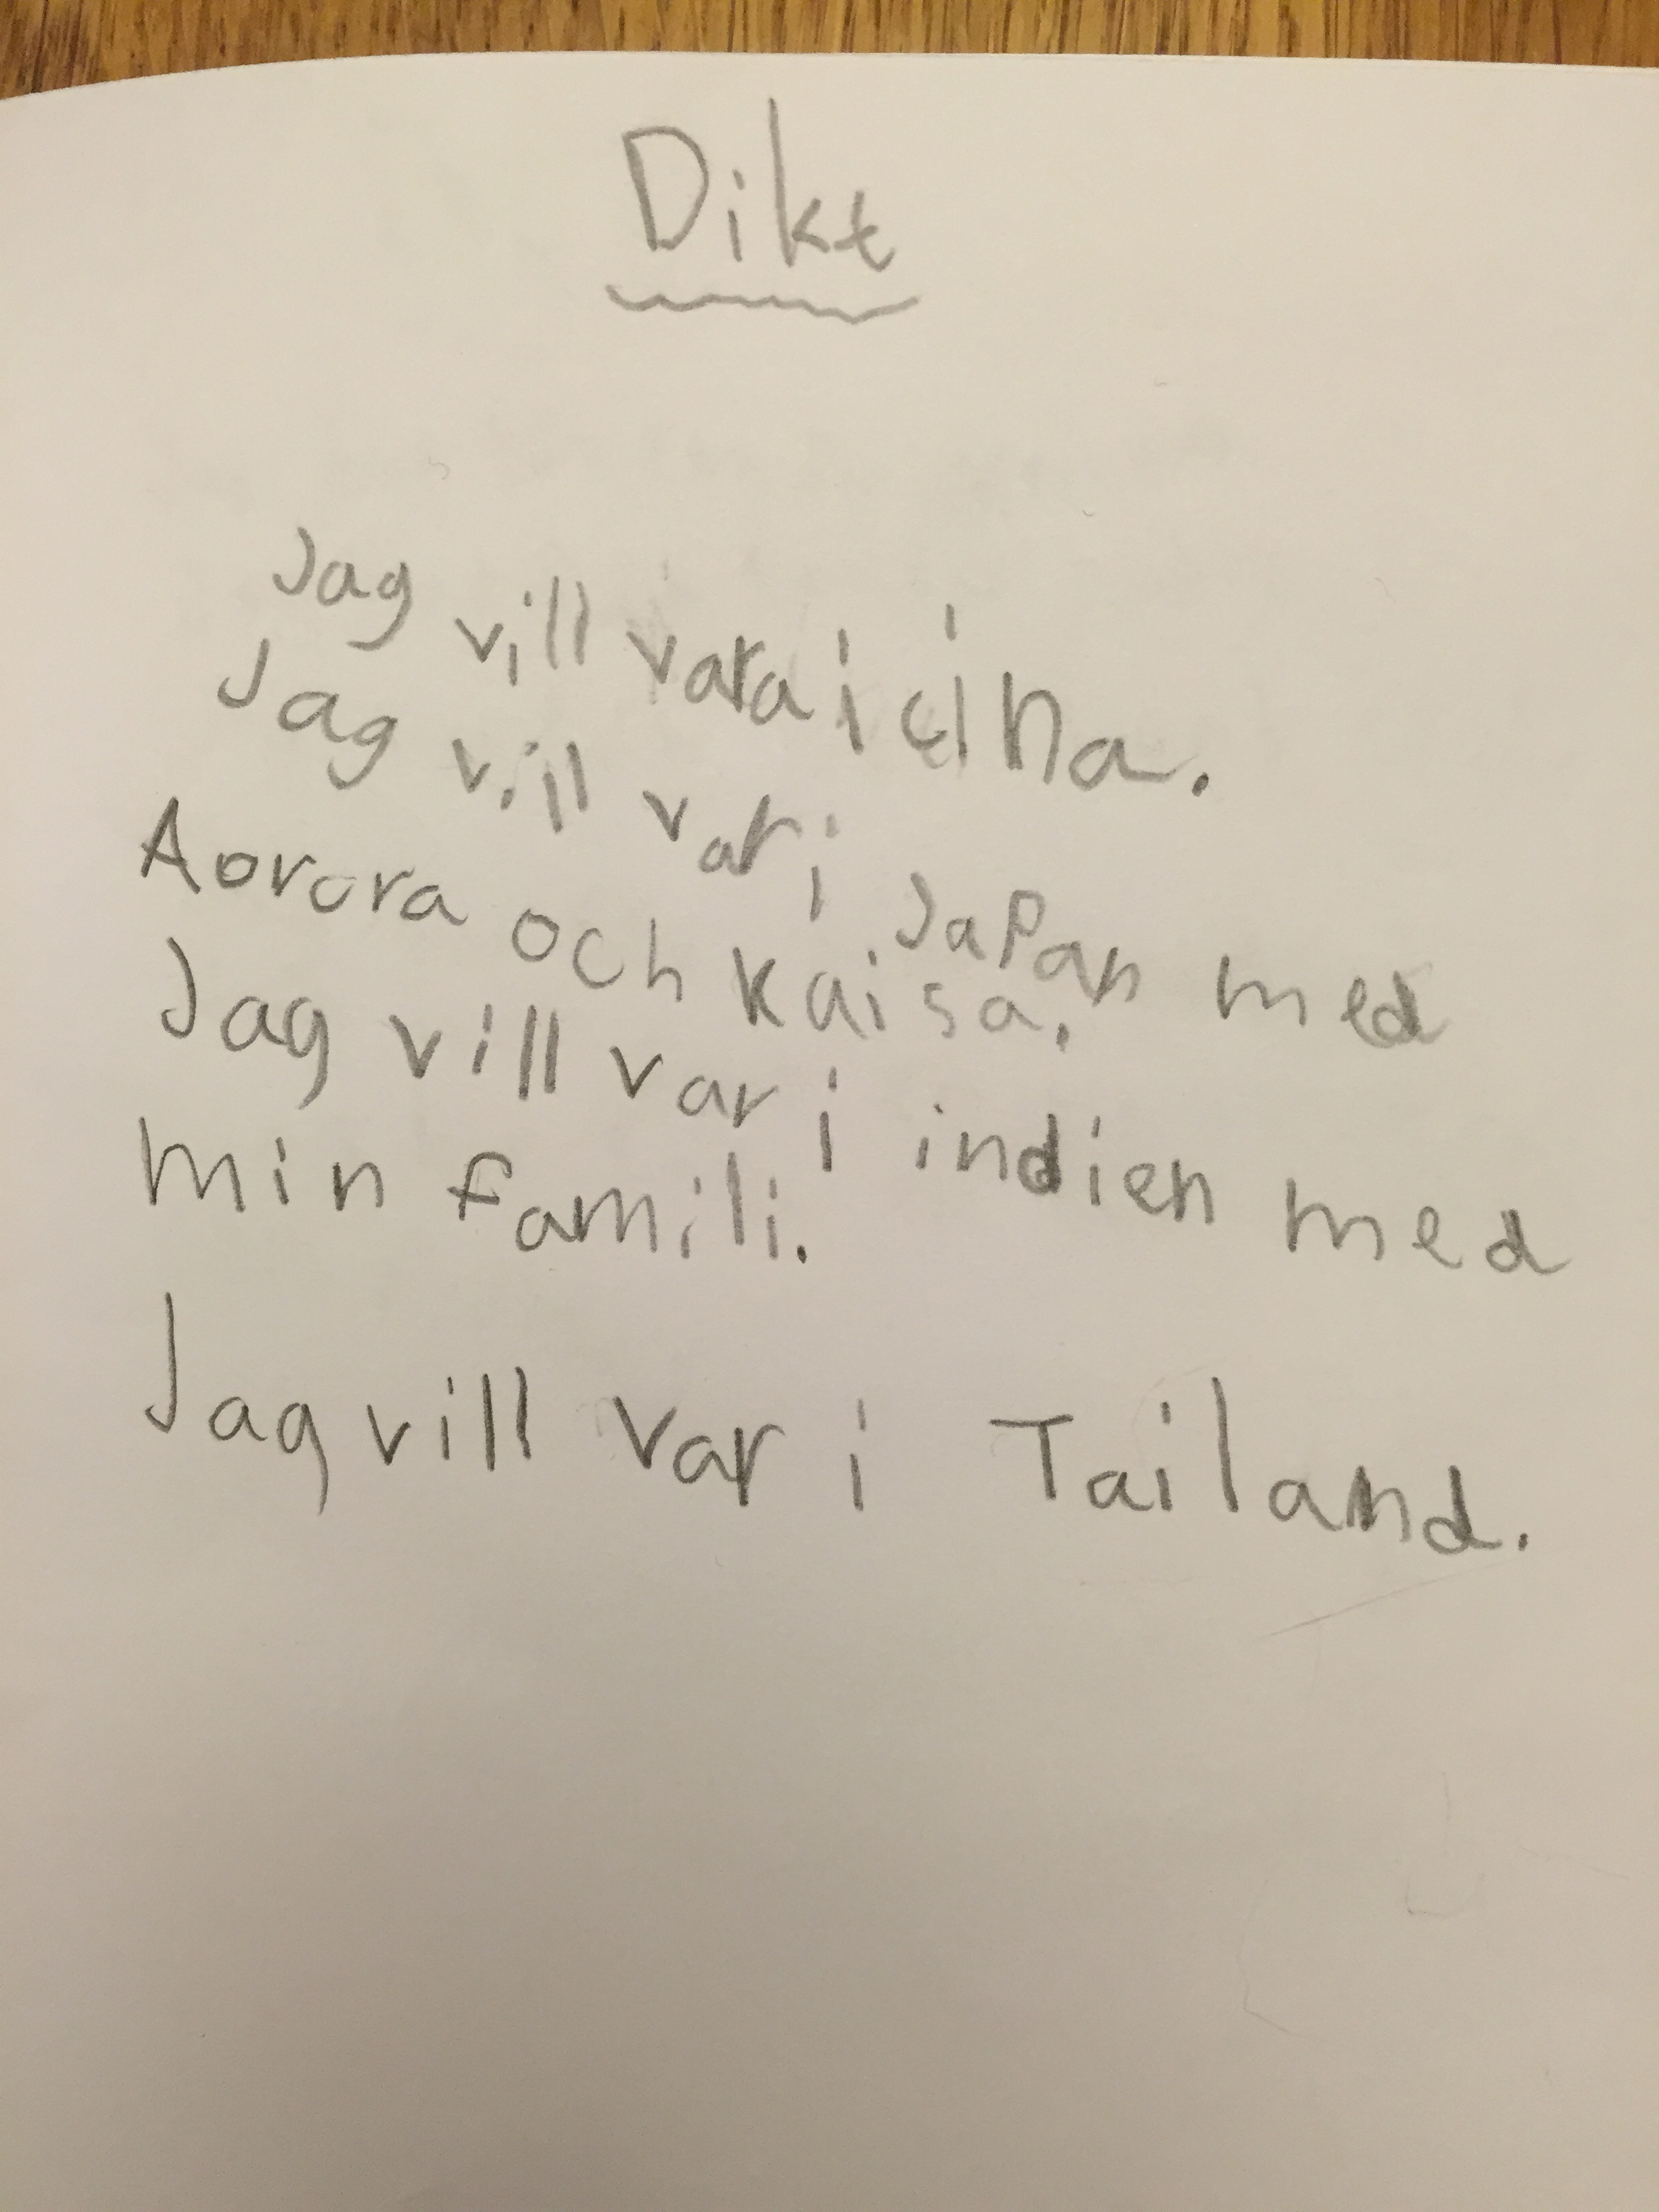 Dikt
Jag vill vara i cina.
Jag vill var i Japan med
Aorora och kaisa.
Jag vill var i indien med
min famili.
Jag vill var i Tailand.